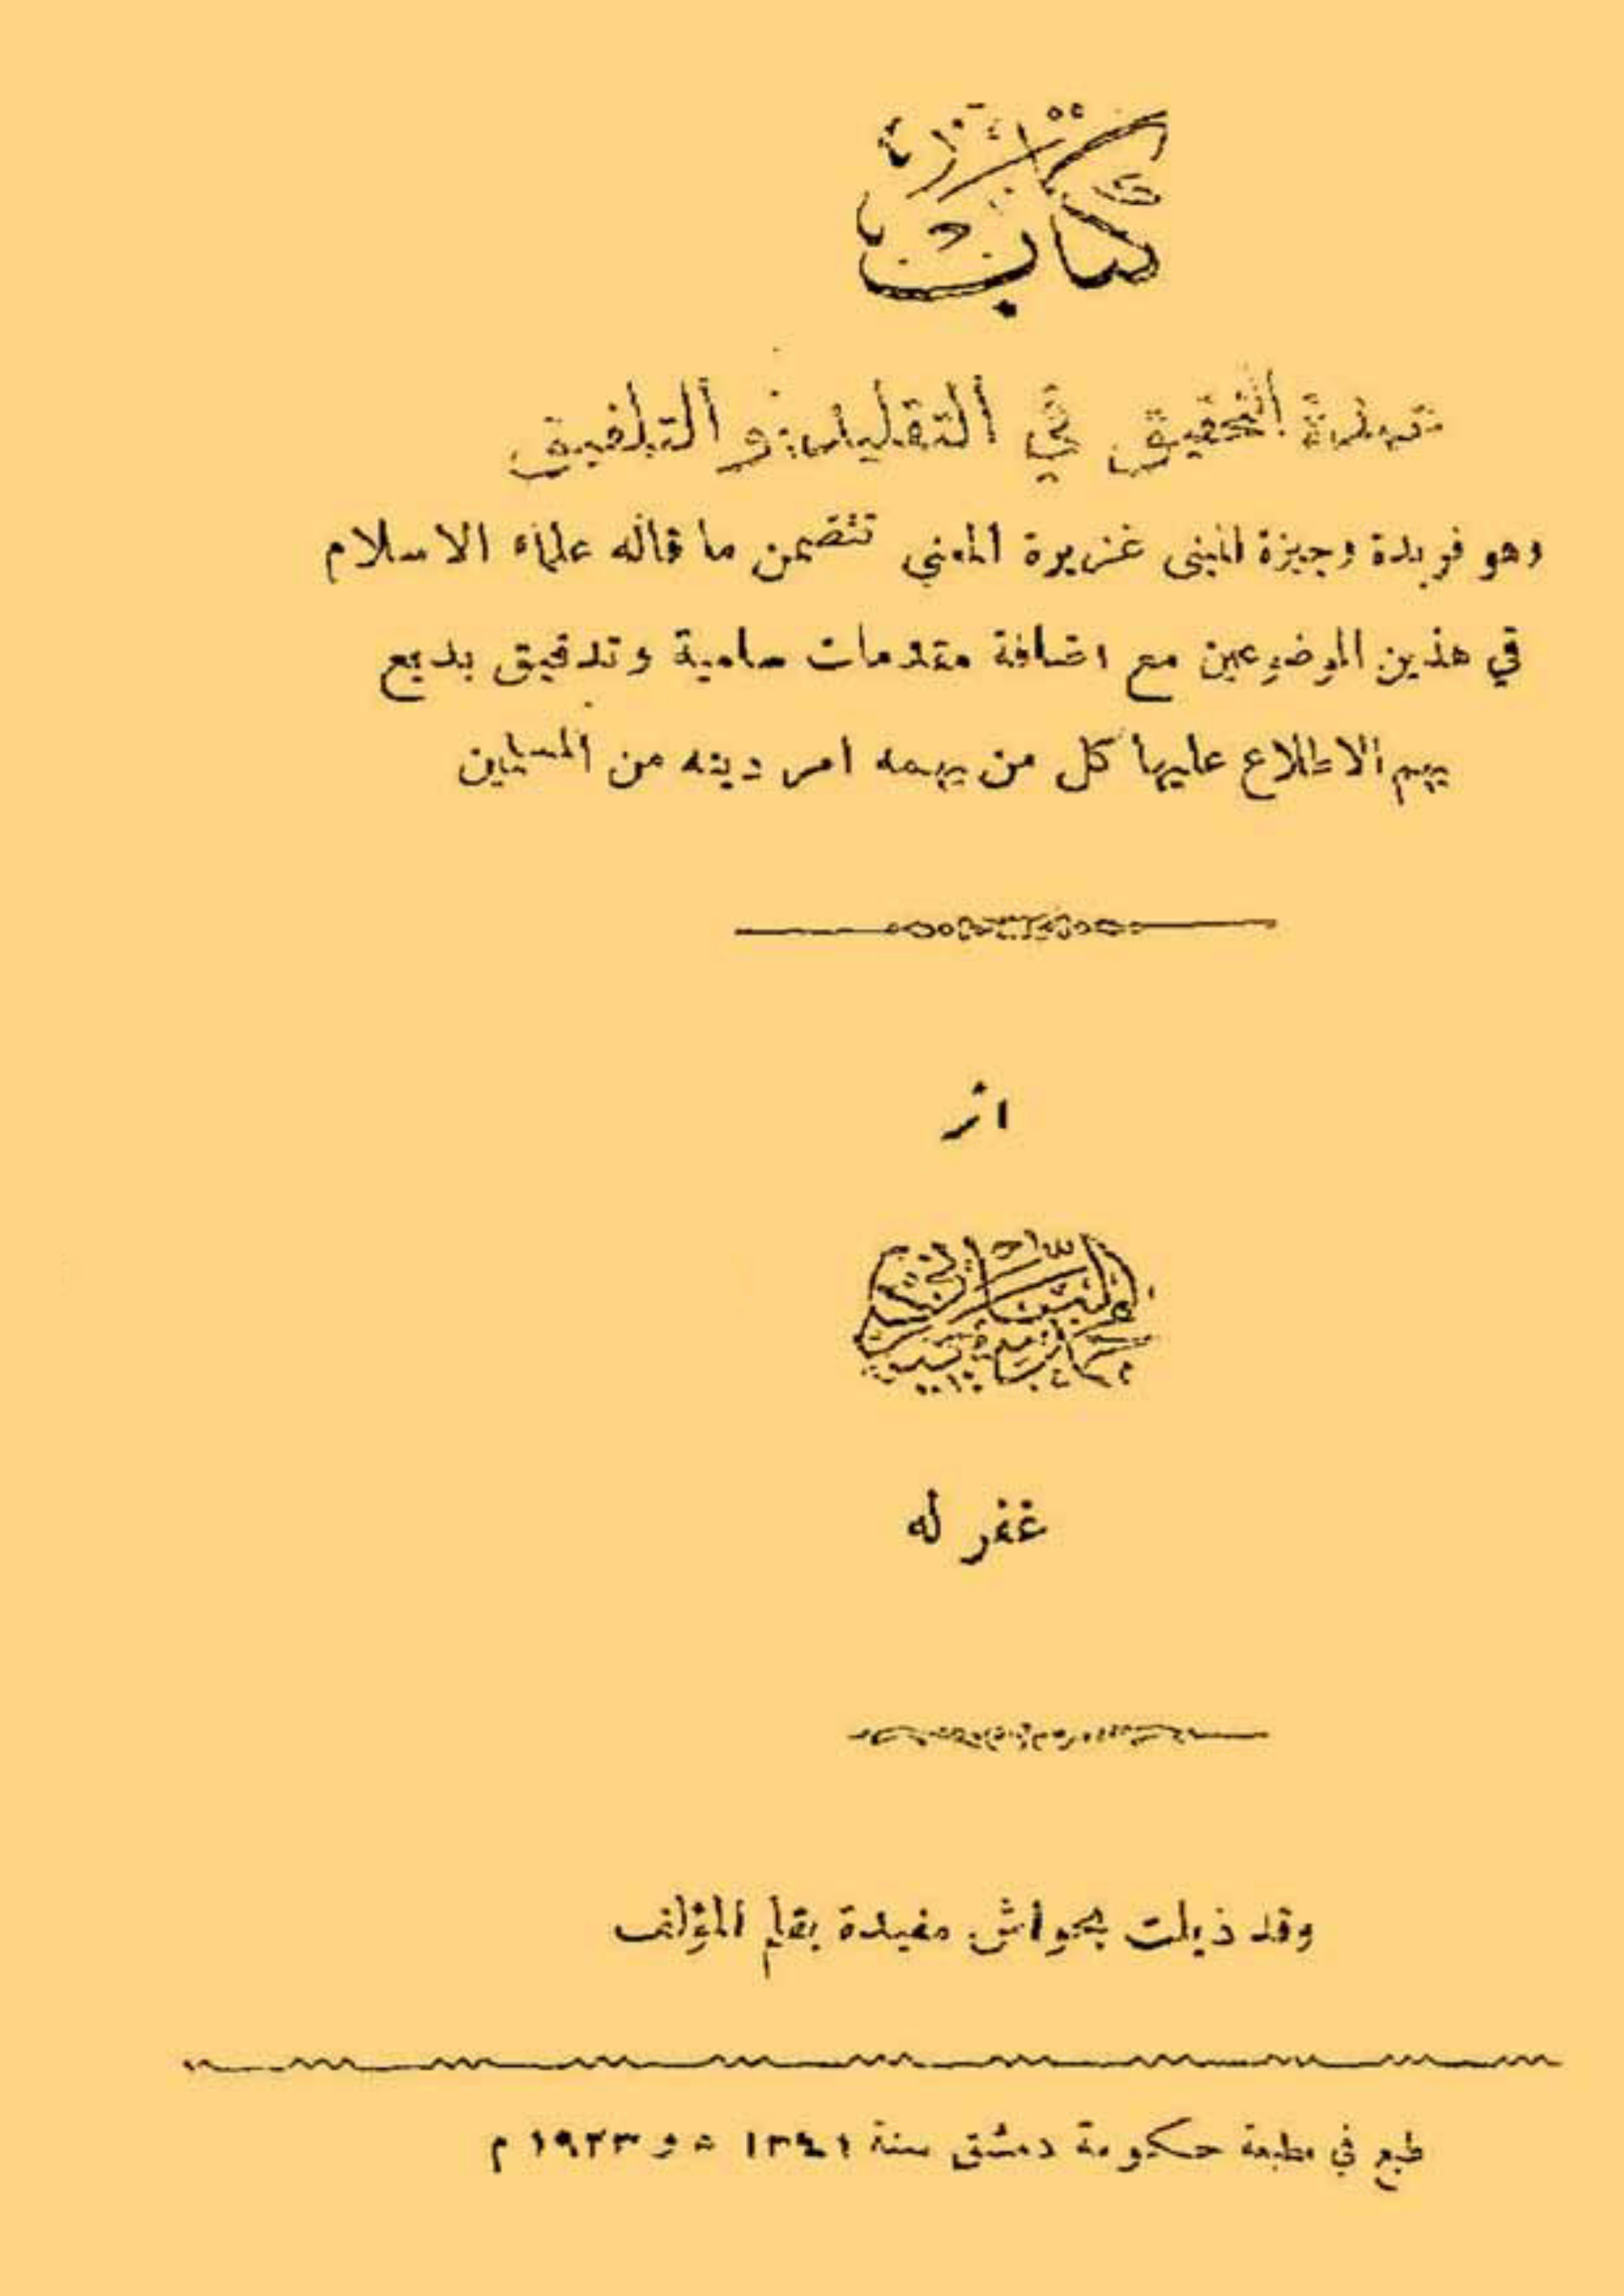 كتاب
عمدة التحقيق في التقليد والتلفيق
وهو فريدة وجيزة المبنى غزيرة المعنى تتضمن ما قاله علماء الاسلام
في هذين الموضوعين مع اضافة مقدمات سامية وتدقيق بديع
يهم الاطلاع عليها كل من يهمه امر دينه من المسلمين
اثر
غفر له
وقد ذيلت بحواش مفيدة بقلم المؤلف
طبع في مطبعة حكومة دمشق سنة ١٣٤١ ه و ١٩٢٣ م